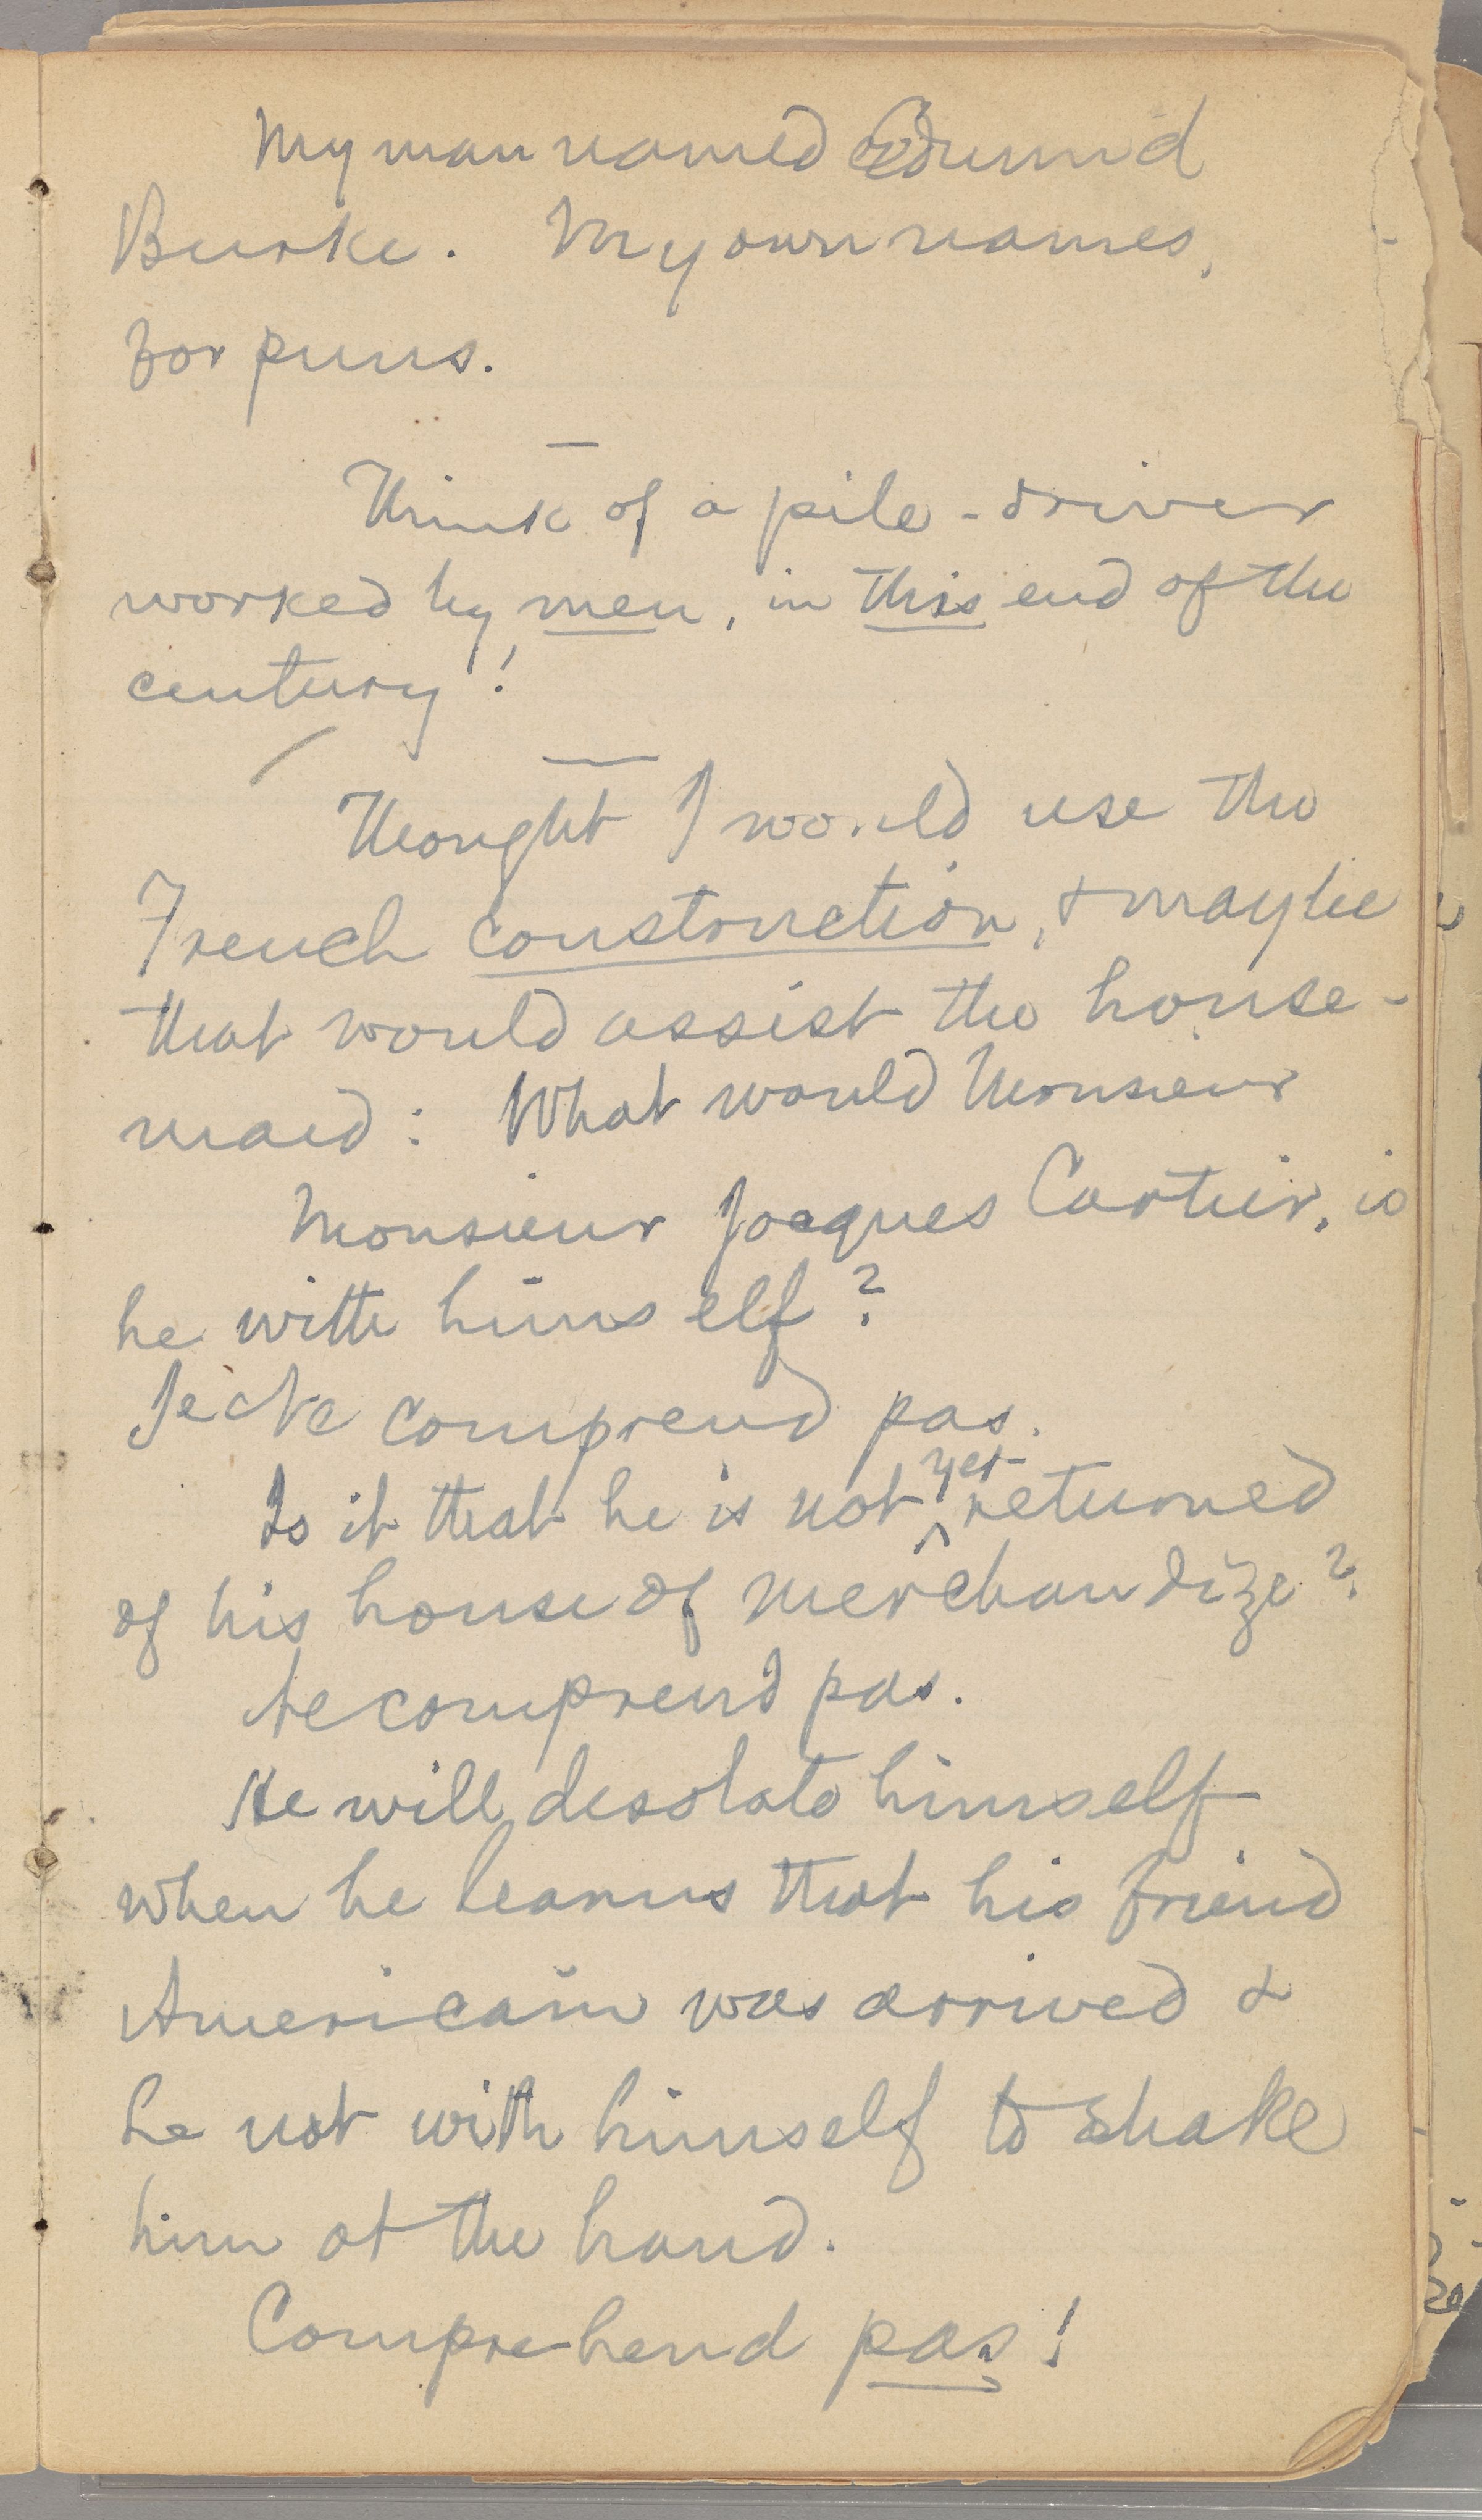 My man named Edmund
Burke. My own names,
for puns.
—
Think of a pile-driver
worked by men, in this end of the
century!
—
Thought I would use the
French construction, & maybe
that would assist the house-
maid: What would Monsieur
Monsieur Jacques Cartier, is
he with himself?
Je Ne comprend pas.
Is it that he is not yet returned
of his house of merchandize?
Ne comprend pas.
He will desolate himself
when he learns that his friend
American was arrived &
he not with himself to shake
him at the hand.
Comprehend pas!